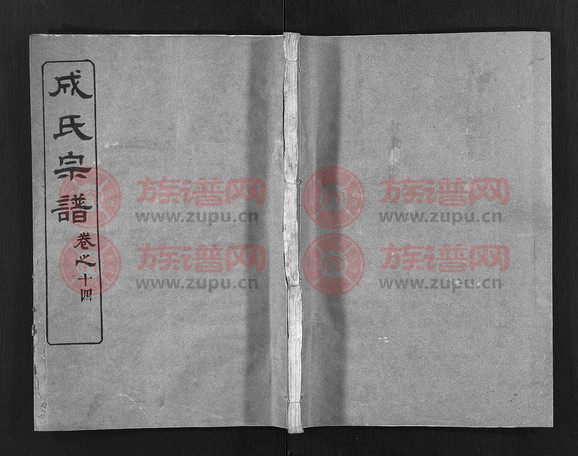 成氏宗譜
卷之十四
族谱网
www.zupu.cn
族谱网
www.zupu.cn
族谱网
www.zupu.cn
族谱网
www.zupu.cn